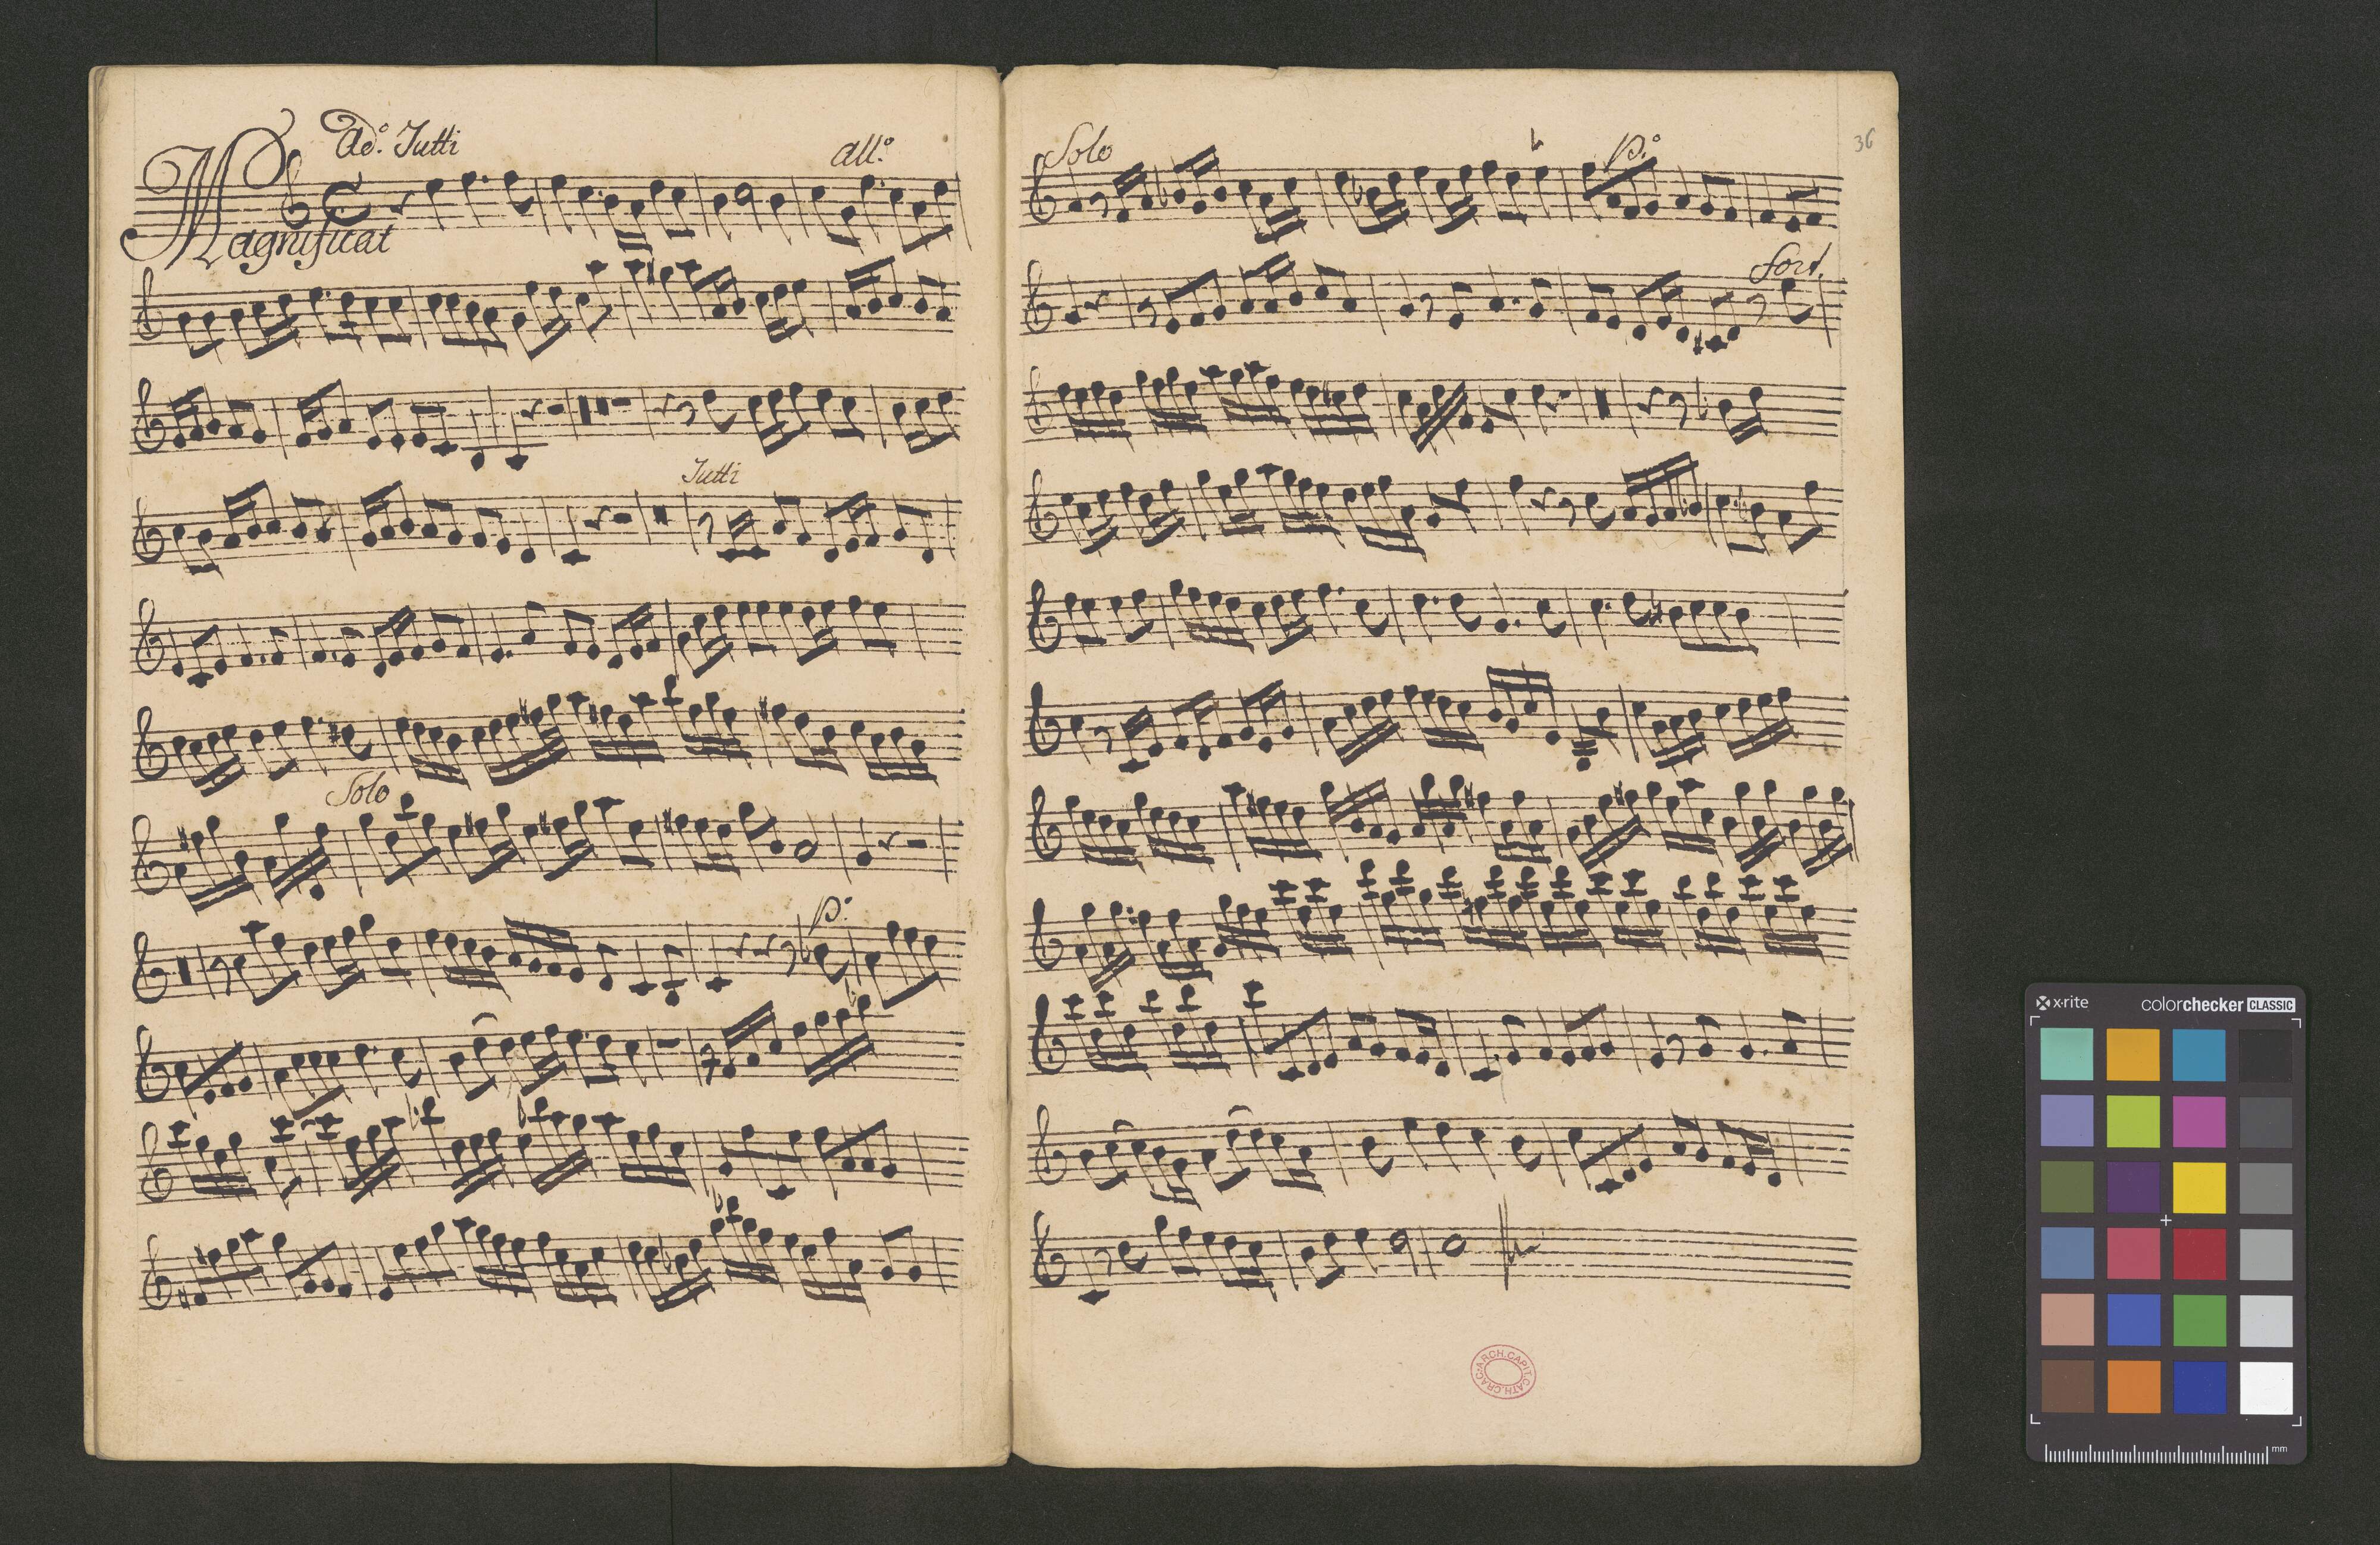 Ad.º Tutti
All.º
Magnificat
Tutti
Solo
p.º
Solo
p.º
36
Fort.
ARCH.CAPIT.CATH.CRAC.
x·rite
colorchecker CLASSIC
mm